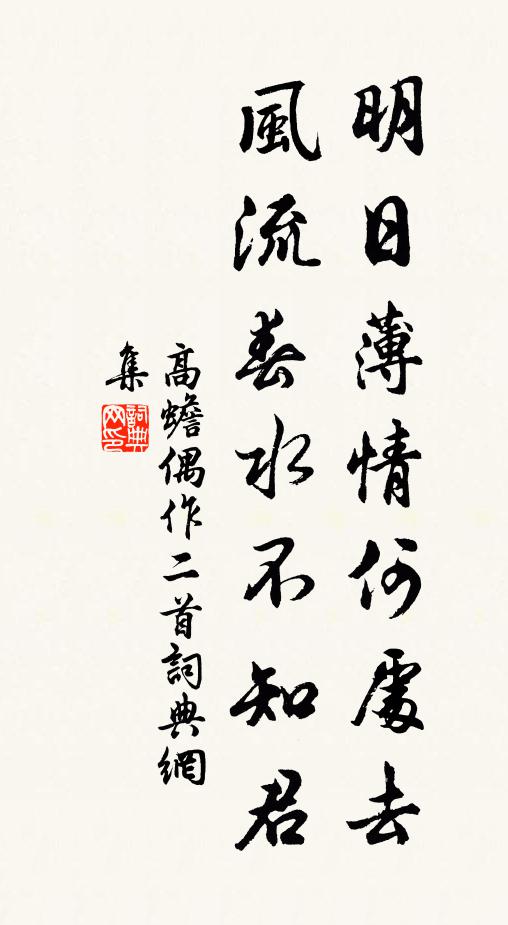 明日薄情何處去
風流春水不知君
高蟾偶作二首詞典網
集
詞典
网印